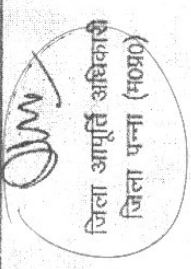 जिला आपूर्ति अधिकारी
जिला पन्ना (म०प्र०)